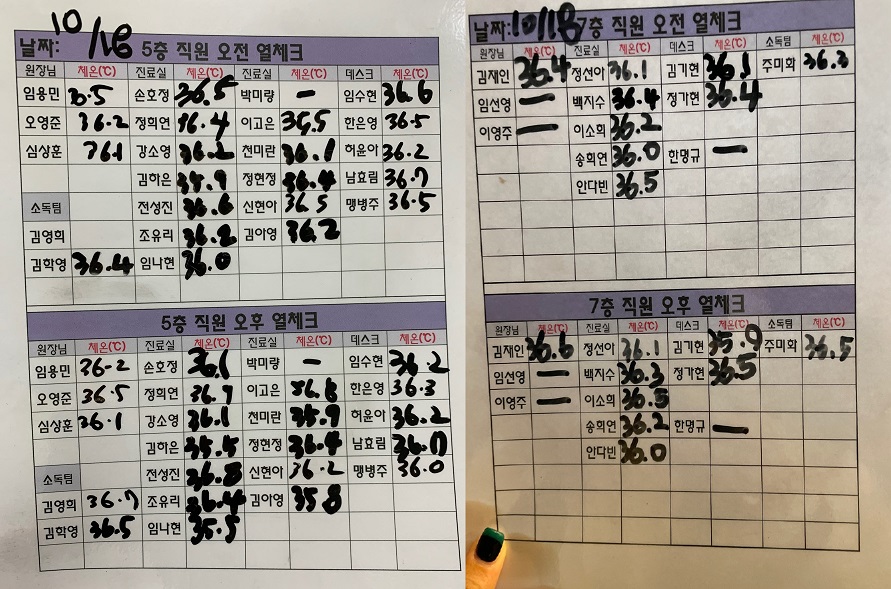 날짜: 10/18 5층 직원 오전 열체크
원장님 체온(℃) 진료실 체온(℃) 진료실 체온(℃) 데스크 체온(℃)
임용민 손호정 36.5 박미량 — 임수현 36.6
오영준 36.2 정희연 36.4 이고은 35.5 한은영 36.5
심상훈 36.1 강소영 36.2 천미란 36.1 허윤아 36.2
김하은 35.9 정현정 36.4 남효림 36.7
소독팀 전성진 36.6 신현아 36.5 맹병주 36.5
김영희 조유리 36.2 김아영 36.2
김학영 36.4 임나현 36.0
5층 직원 오후 열체크
원장님 체온(℃) 진료실 체온(℃) 진료실 체온(℃) 데스크 체온(℃)
임용민 36-2 손호정 36.1 박미량 — 임수현 36.2
오영준 36.5 정희연 36.7 이고은 36.6 한은영 36.3
심상훈 36.1 강소영 36.1 천미란 35.9 허윤아 36.2
김하은 35.5 정현정 36.4 남효림 36.7
소독팀 전성진 36.8 신현아 36.2 맹병주 36.0
김영희 36.7 조유리 36.4 김아영 35.8
김학영 36.5 임나현 35.5
날짜: 10/18 7층 직원 오전 열체크
원장님 체온(℃) 진료실 체온(℃) 데스크 체온(℃) 소독팀 체온(℃)
김재인 36.4 정선아 36.1 김기현 36.1 주미화 36.3
임선영 — 백지수 36.4 정가현 36.4
이영주 — 이소희 36.2
송희연 36.0 한명규 —
안다빈 36.5
7층 직원 오후 열체크
원장님 체온(℃) 진료실 체온(℃) 데스크 체온(℃) 소독팀 체온(℃)
김재인 36.6 정선아 36.1 김기현 35.9 주미화 36.5
임선영 — 백지수 36.3 정가현 36.5
이영주 — 이소희 36.5
송희연 36.2 한명규 —
안다빈 36.0